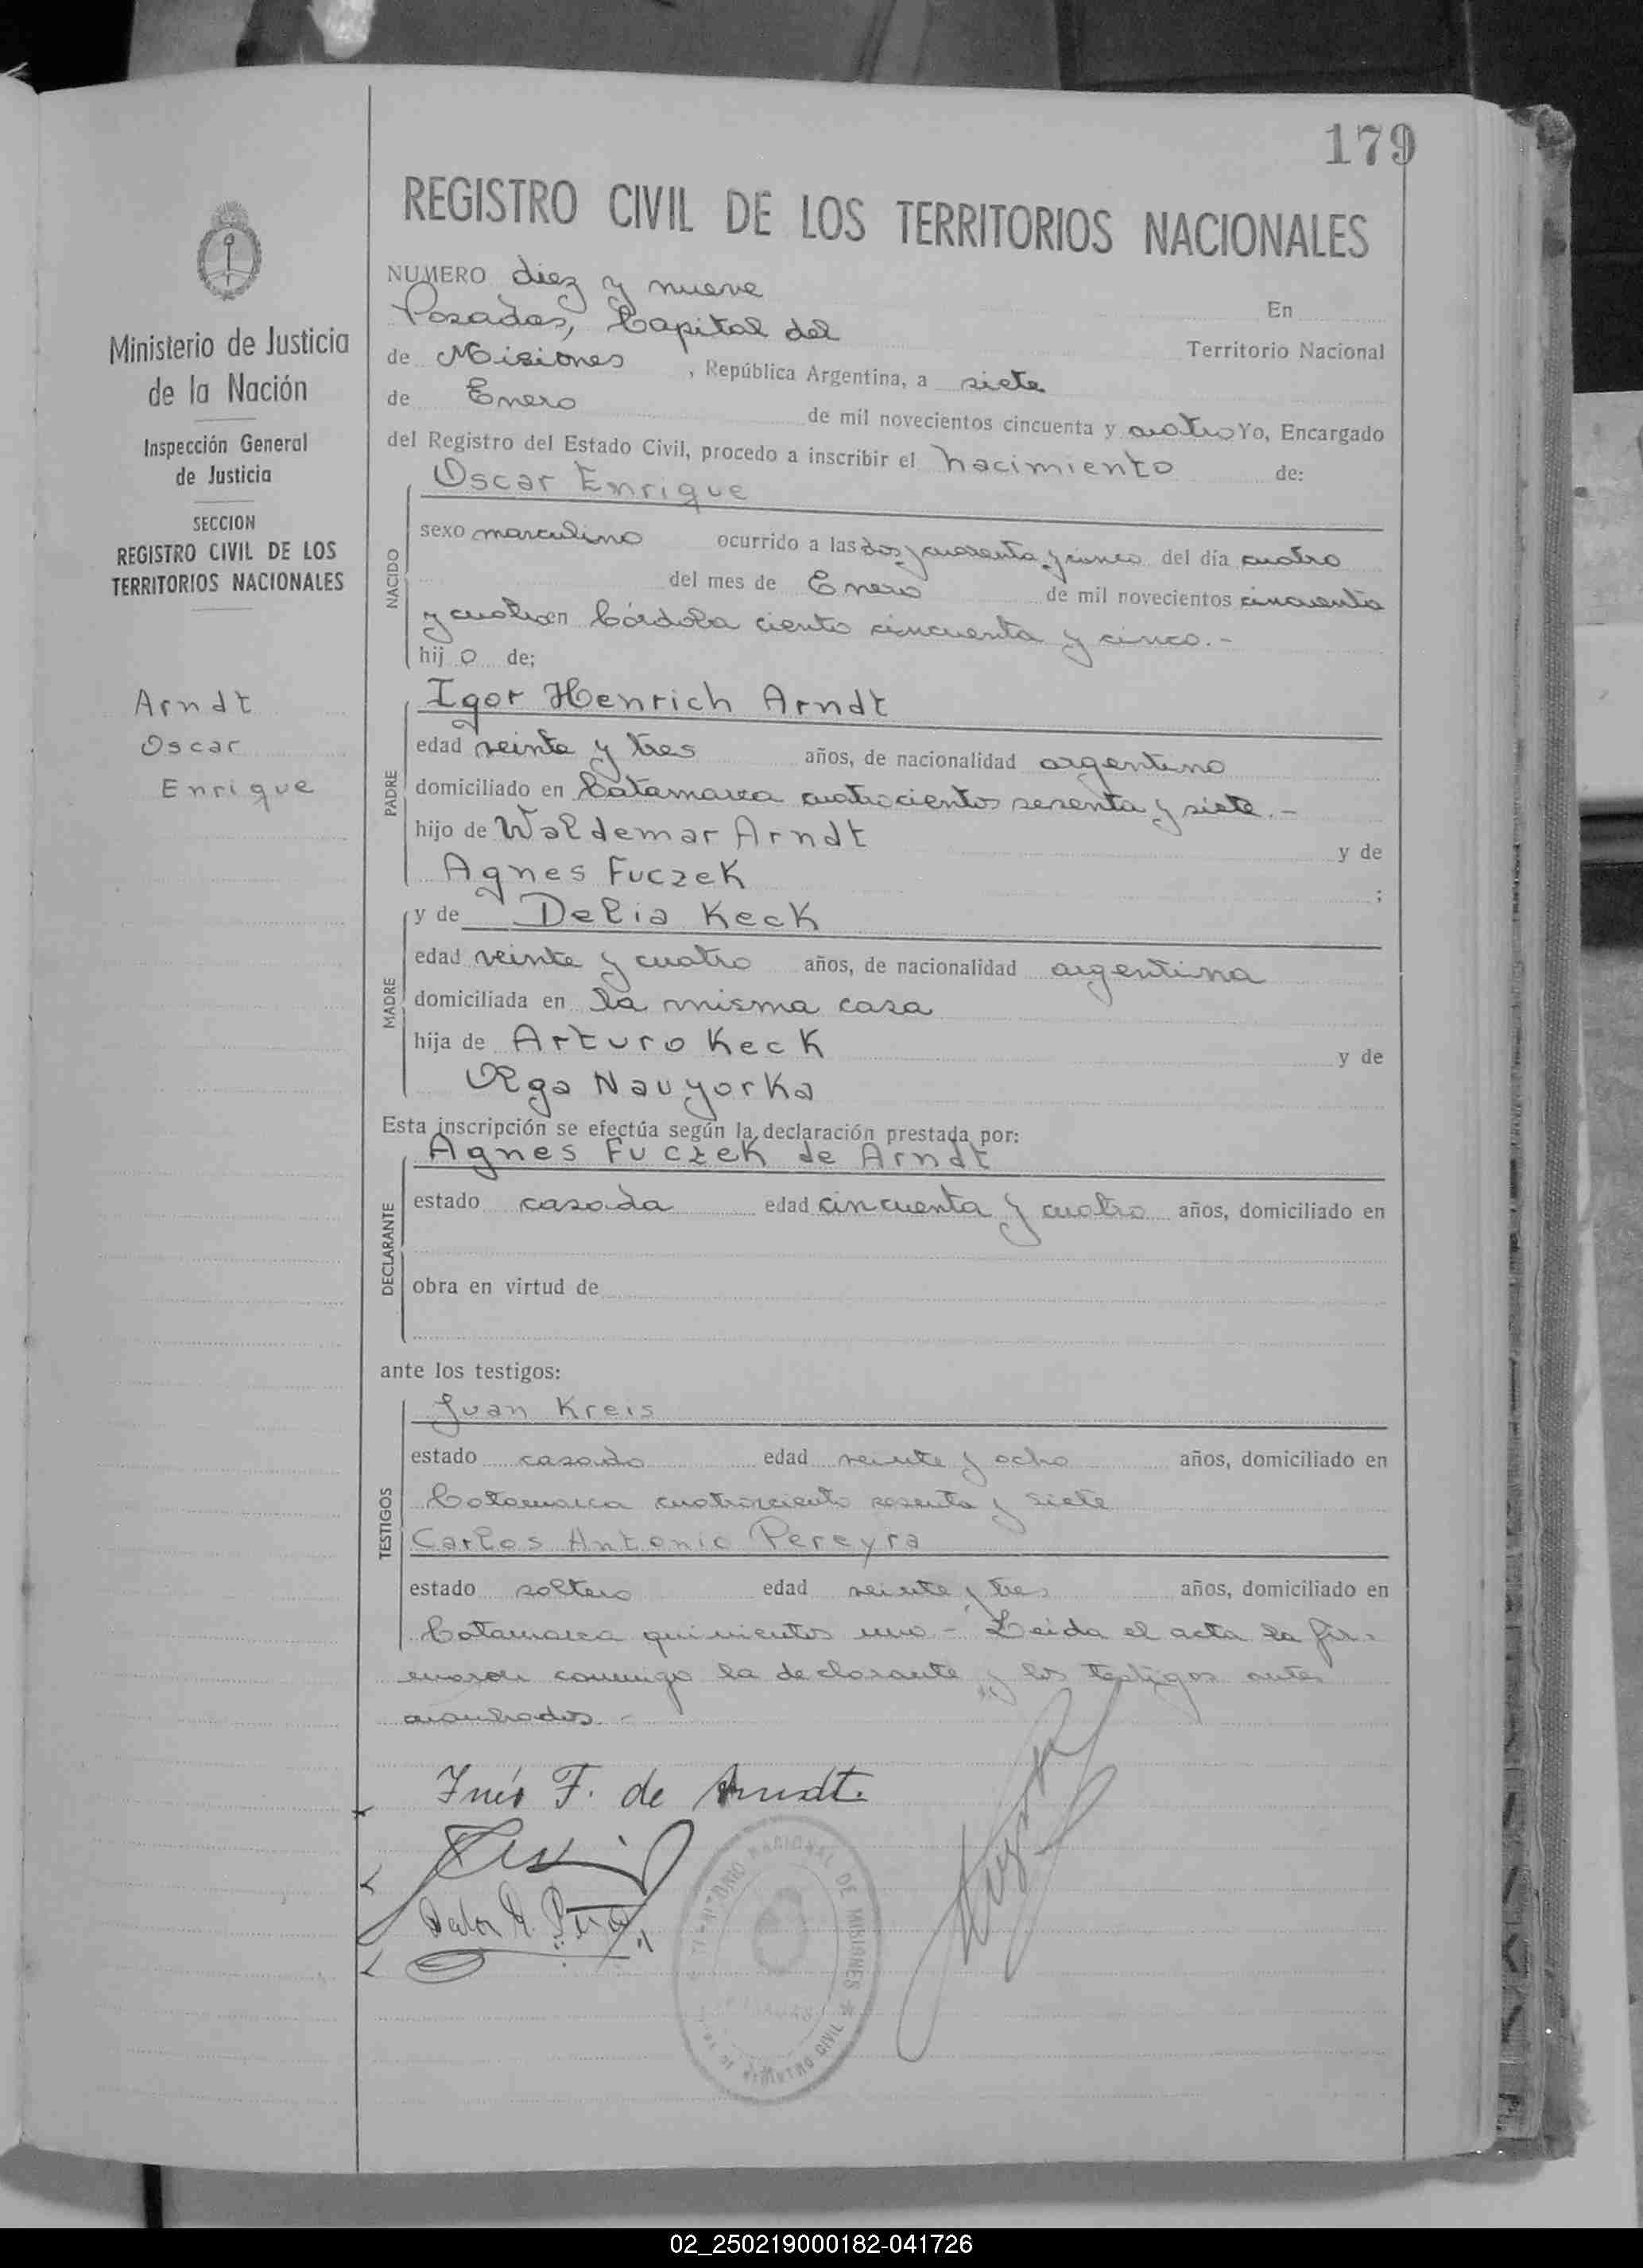 179
REGISTRO CIVIL DE LOS TERRITORIOS NACIONALES
Ministerio de Justicia
de la Nación
Inspección General
de Justicia
SECCION
REGISTRO CIVIL DE LOS
TERRITORIOS NACIONALES
Arndt
Oscar
Enrique
NUMERO diez y nueve En
Posadas, Capital del Territorio Nacional
de Misiones, República Argentina, a siete
de Enero de mil novecientos cincuenta y cuatro Yo, Encargado
del Registro del Estado Civil, procedo a inscribir el nacimiento de:
Oscar Enrique
NACIDO
sexo masculino ocurrido a las dos y cuarenta y cinco del día cuatro
del mes de Enero de mil novecientos cincuenta
y cuatro en Córdoba ciento cincuenta y cinco.-
hijo de;
Igor Henrich Arndt
PADRE
edad veinte y tres años, de nacionalidad argentino
domiciliado en Catamarca cuatrocientos sesenta y siete.-
hijo de Waldemar Arndt y de
Agnes Fuczek ;
y de Delia Keck
MADRE
edad veinte y cuatro años, de nacionalidad argentina
domiciliada en la misma casa
hija de Arturo Keck y de
Olga Nauyorka
Esta inscripción se efectúa según la declaración prestada por:
Agnes Fuczek de Arndt
DECLARANTE
estado casada edad cincuenta y cuatro años, domiciliado en
obra en virtud de
ante los testigos:
Juan Kreis
TESTIGOS
estado casado edad veinte y ocho años, domiciliado en
Catamarca cuatrociento sesenta y siete
Carlos Antonio Pereyra
estado soltero edad veinte y tres años, domiciliado en
Catamarca quinientos uno - Leida el acta la fir-
maron conmigo la declarante y los testigos antes
nombrados.-
Inés F. de Arndt.
TERRITORIO NACIONAL DE MISIONES
REGISTRO CIVIL
02_250219000182-041726